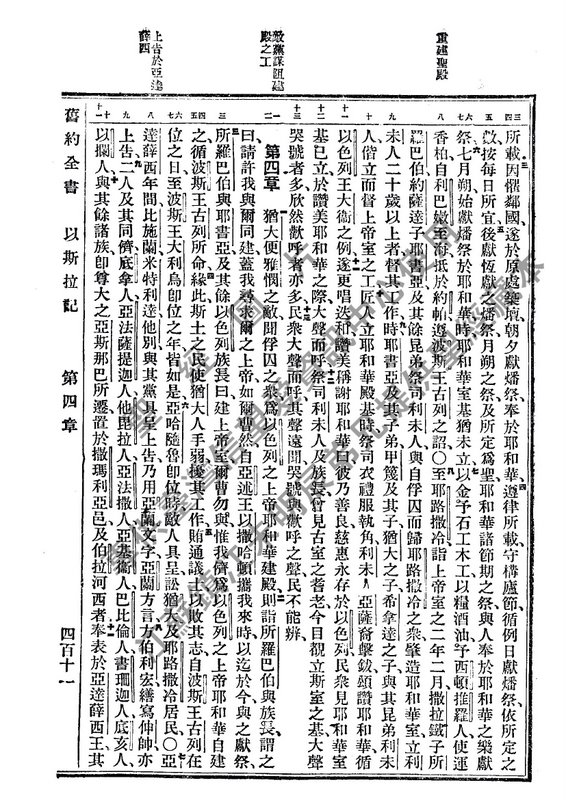 重建聖殿
敵黨謀阻建
殿之工
上告於亞達
薛西
所載因懼鄰國遂於原處築壇朝夕獻燔祭奉於耶和華遵律所載守構廬節循例日獻燔祭依所定之
數按每日所宜後獻恆獻之燔祭月朔之祭及所定爲聖耶和華諸節期之祭與人奉於耶和華之樂獻
祭七月朔始獻燔祭於耶和華時耶和華室基猶未立以金予石工木工以糧酒油予西頓推羅人使運
香柏自利巴嫩至海抵於約帕遵波斯王古列之詔〇至耶路撒冷詣上帝室之二年二月撒拉鐵子所
羅巴伯約薩達子耶書亞及其餘昆弟祭司利未人與自俘囚而歸耶路撒冷之衆肇造耶和華室立利
未人二十歲以上者督其工作時耶書亞及其子弟甲篾及其子猶大之子希拿達之子與其昆弟利未
人偕立而督上帝室之工匠人立耶和華殿基時祭司衣禮服執角利未人亞薩裔擊鈸頌讚耶和華循
以色列王大衞之例遂更唱迭和讚美稱謝耶和華曰彼乃善良慈惠永存於以色列民衆見耶和華室
基已立於讚美耶和華之際大聲而呼祭司利未人及族長曾見古室之耆老今目覩立斯室之基大聲
哭號者多欣然歡呼者亦多民衆大聲而呼其聲遠聞哭號與歡呼之聲民不能辨
第四章 猶大便雅憫之敵聞俘囚之衆爲以色列之上帝耶和華建殿則詣所羅巴伯與族長謂之
曰請許我與爾同建蓋我尋求爾之上帝如爾曹然自亞述王以撒哈頓攜我來時以迄於今與之獻祭
所羅巴伯與耶書亞及其餘以色列族長曰建上帝室爾曹勿與惟我儕爲以色列之上帝耶和華自建
之循波斯王古列所命緣此斯土之民使猶大人手弱擾其工作賄通議士以敗其志自波斯王古列在
位之日至波斯王大利烏卽位之年皆如是亞哈隨魯卽位時敵人具呈訟猶大及耶路撒冷居民〇亞
達薛西年間比施蘭米特利達他別與其黨具呈上告乃用亞蘭文字亞蘭方言方伯利宏繕寫伸帥亦
上告二人及其同儕底拿人亞法薩提迦人他毘拉人亞法撒人亞基衞人巴比倫人書珊迦人底亥人
以攔人與其餘諸族卽尊大之亞斯那巴所遷置於撒瑪利亞邑及伯拉河西者奉表於亞達薛西王其
舊約全書 以斯拉記 第四章 四百十一